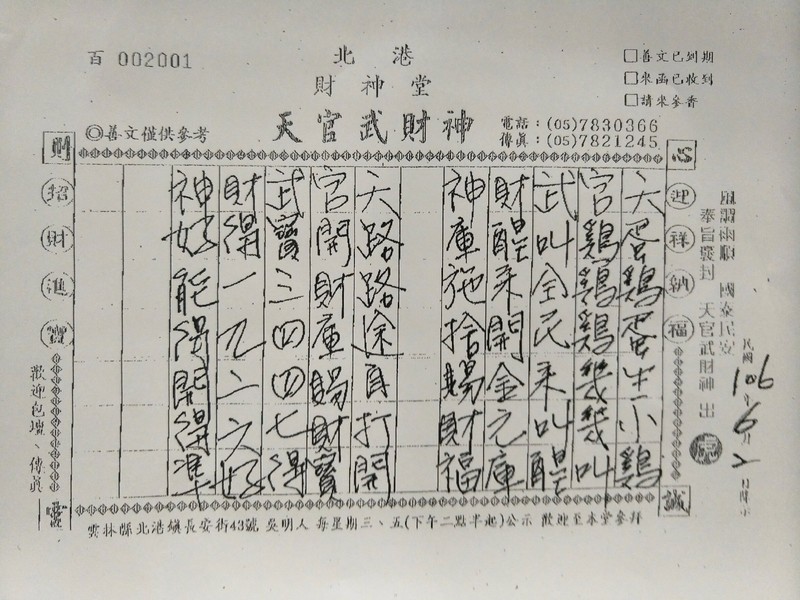 百 002001
北港
財神堂
天官武財神
◎善文僅供參考
□善文已到期
□來函已收到
□請來參香
電話：(05)7830366
傳真：(05)7821245
心
迎祥納福
誠
國泰民安
奉旨發封 天官武財神 出
民國106年6月2日
天蛋鷄蛋生小鷄
宮鷄鷄鷄幾幾叫
武叫全民來叫醒
財醒來開金元庫
神庫施捨賜財福
天路路途自打開
官開財庫賜財寶
武寶三四四七得
財得一九二六好
神好能得開得準
財
招財進寶
靈
歡迎包壇、傳真
雲林縣北港鎮長安街43號 吳明人 每星期三、五(下午二點半起)公示 歡迎至本堂參拜